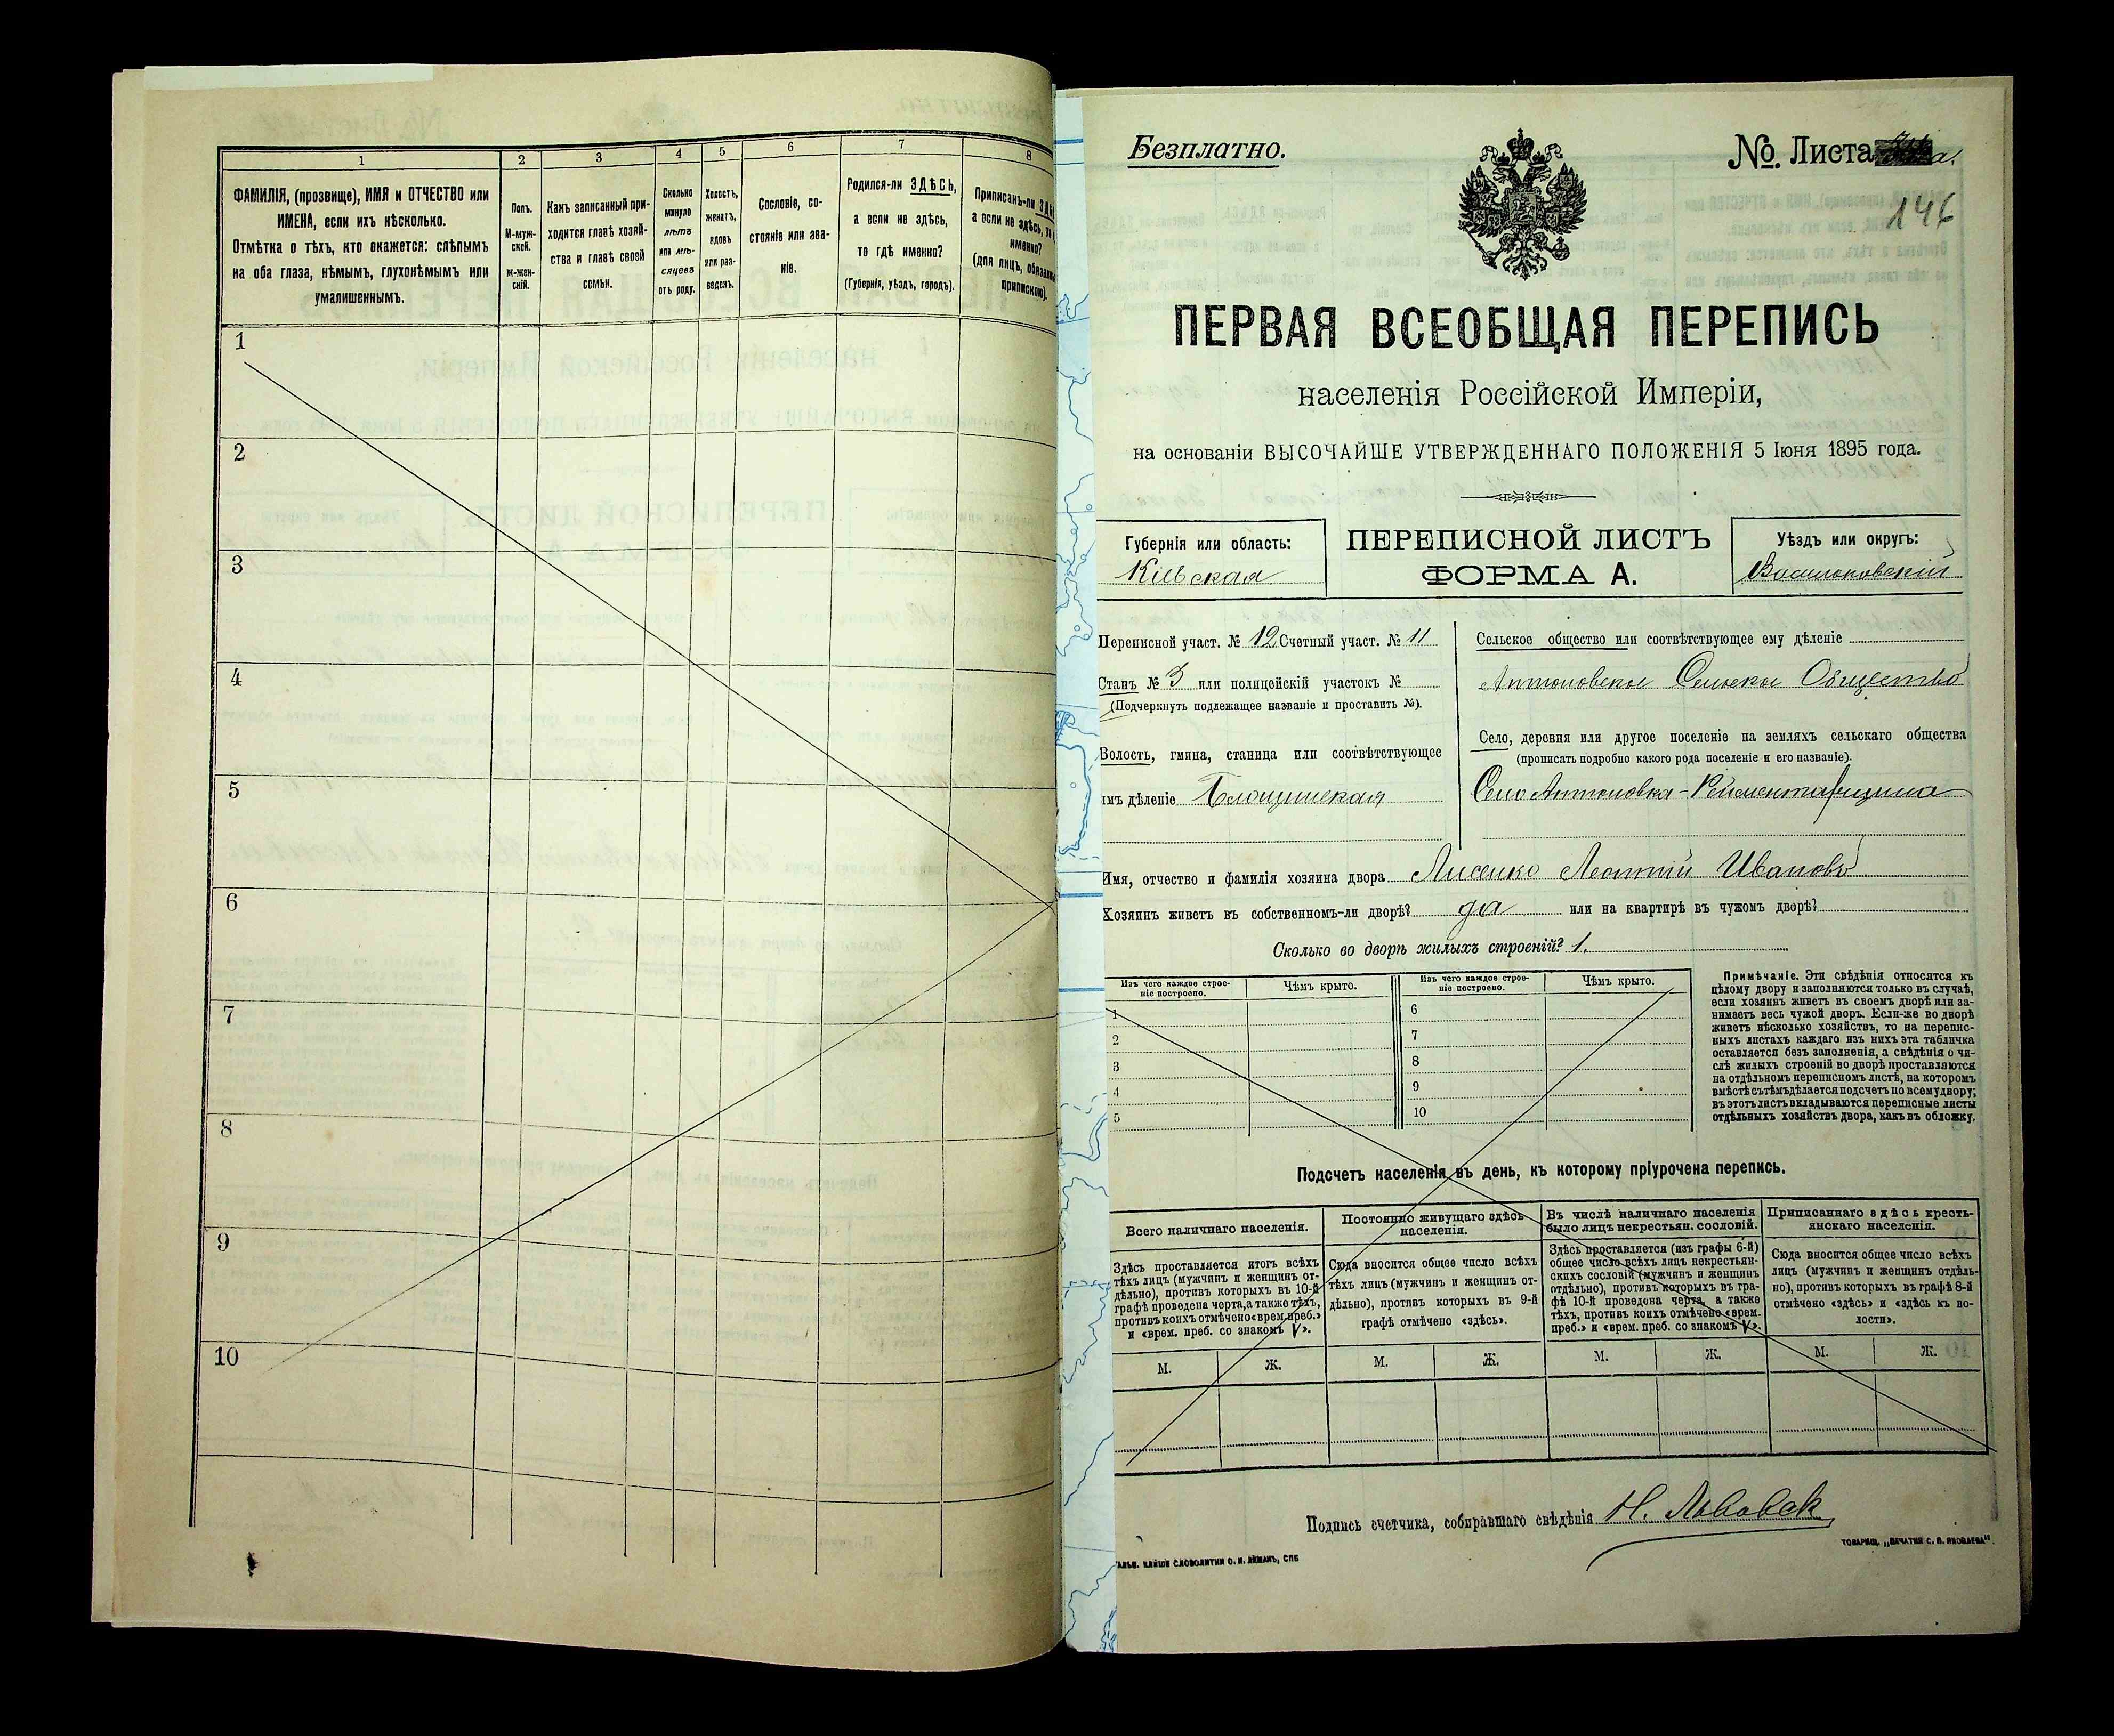 1
2
3
4
5
6
7
8
ФАМИЛІЯ, (прозвище), ИМЯ и ОТЧЕСТВО или
ИМЕНА, если ихъ нѣсколько.
Отмѣтка о тѣхъ, кто окажется: слѣпымъ
на оба глаза, нѣмымъ, глухонѣмымъ или
умалишеннымъ.
Полъ.
М-муж-
ской.
ж-жен-
скій.
Какъ записанный при-
ходится главѣ хозяй-
ства и главѣ своей
семьи.
Сколько
минуло
лѣтъ
или мѣ-
сяцевъ
отъ роду.
Холостъ,
женатъ,
вдовъ
или раз-
веденъ.
Сословіе, со-
стояніе или зва-
ніе.
Родился-ли ЗДѢСЬ,
а если не здѣсь,
то гдѣ именно?
(Губернія, уѣздъ, городъ).
Приписанъ-ли
а если не здѣсь,
именно?
(для лицъ,
припискою).
1
2
3
4
5
6
7
8
9
10
Безплатно.
№ Листа
146
ПЕРВАЯ ВСЕОБЩАЯ ПЕРЕПИСЬ
населенія Россійской Имперіи,
на основаніи ВЫСОЧАЙШЕ УТВЕРЖДЕННАГО ПОЛОЖЕНІЯ 5 Іюня 1895 года.
Губернія или область:
Кіевская
ПЕРЕПИСНОЙ ЛИСТЪ
ФОРМА А.
Уѣздъ или округъ:
Васильковскій
Переписной участ. № 12 Счетный участ. № 11
Станъ № 3 или полицейскій участокъ №
(Подчеркнуть подлежащее названіе и проставить №).
Волость, гмина, станица или соотвѣтствующее
имъ дѣленіе Блощинская
Сельское общество или соотвѣтствующее ему дѣленіе
Антоновское Сельское Общество
Село, деревня или другое поселеніе на земляхъ сельскаго общества
(прописать подробно какого рода поселеніе и его названіе).
Село Антоновка-Рейментарщина
Имя, отчество и фамилія хозяина двора Лисенко Леонтій Ивановъ
Хозяинъ живетъ въ собственномъ-ли дворѣ? да или на квартирѣ въ чужомъ дворѣ?
Сколько во дворѣ жилыхъ строеній? 1.
Изъ чего каждое строе-
ніе построено.
Чѣмъ крыто.
Изъ чего каждое строе-
ніе построено.
Чѣмъ крыто.
1
2
3
4
5
6
7
8
9
10
Примѣчаніе. Эти свѣдѣнія относятся къ
цѣлому двору и заполняются только въ случаѣ,
если хозяинъ живетъ въ своемъ дворѣ или за-
нимаетъ весь чужой дворъ. Если-же во дворѣ
живетъ нѣсколько хозяйствъ, то на перепис-
ныхъ листахъ каждаго изъ нихъ эта табличка
оставляется безъ заполненія, а свѣдѣнія о чи-
слѣ жилыхъ строеній во дворѣ проставляются
на отдѣльномъ переписномъ листѣ, на которомъ
вмѣстѣ съ тѣмъ дѣлается подсчетъ по всему двору;
въ этотъ листъ вкладываются переписные листы
отдѣльныхъ хозяйствъ двора, какъ въ обложку.
Подсчетъ населенія въ день, къ которому пріурочена перепись.
Всего наличнаго населенія.
Здѣсь проставляется итогъ всѣхъ
тѣхъ лицъ (мужчинъ и женщинъ от-
дѣльно), противъ которыхъ въ 10-й
графѣ проведена черта, а также тѣхъ,
противъ коихъ отмѣчено «врем. преб.»
и «врем. преб. со знакомъ V».
Постоянно живущаго здѣсь
населенія.
Сюда вносится общее число всѣхъ
тѣхъ лицъ (мужчинъ и женщинъ от-
дѣльно), противъ которыхъ въ 9-й
графѣ отмѣчено «здѣсь».
Въ числѣ наличнаго населенія
было лицъ некрестьян. сословій.
Здѣсь проставляется (изъ графы 6-й)
общее число всѣхъ лицъ некрестьян-
скихъ сословій (мужчинъ и женщинъ
отдѣльно), противъ которыхъ въ гра-
фѣ 10-й проведена черта, а также
тѣхъ, противъ коихъ отмѣчено «врем.
преб.» и «врем. преб. со знакомъ V».
Приписаннаго здѣсь кресть-
янскаго населенія.
Сюда вносится общее число всѣхъ
лицъ (мужчинъ и женщинъ отдѣль-
но), противъ которыхъ въ графѣ 8-й
отмѣчено «здѣсь» и «здѣсь къ во-
лости».
М.
Ж.
М.
Ж.
М.
Ж.
М.
Ж.
Подпись счетчика, собиравшаго свѣдѣнія Н. Львовак
СЛОВОЛИТНИ О. И. ЛЕМАНЪ, СПБ
ТОВАРИЩ. „ПЕЧАТНЯ С. П. ЯКОВЛЕВА“.